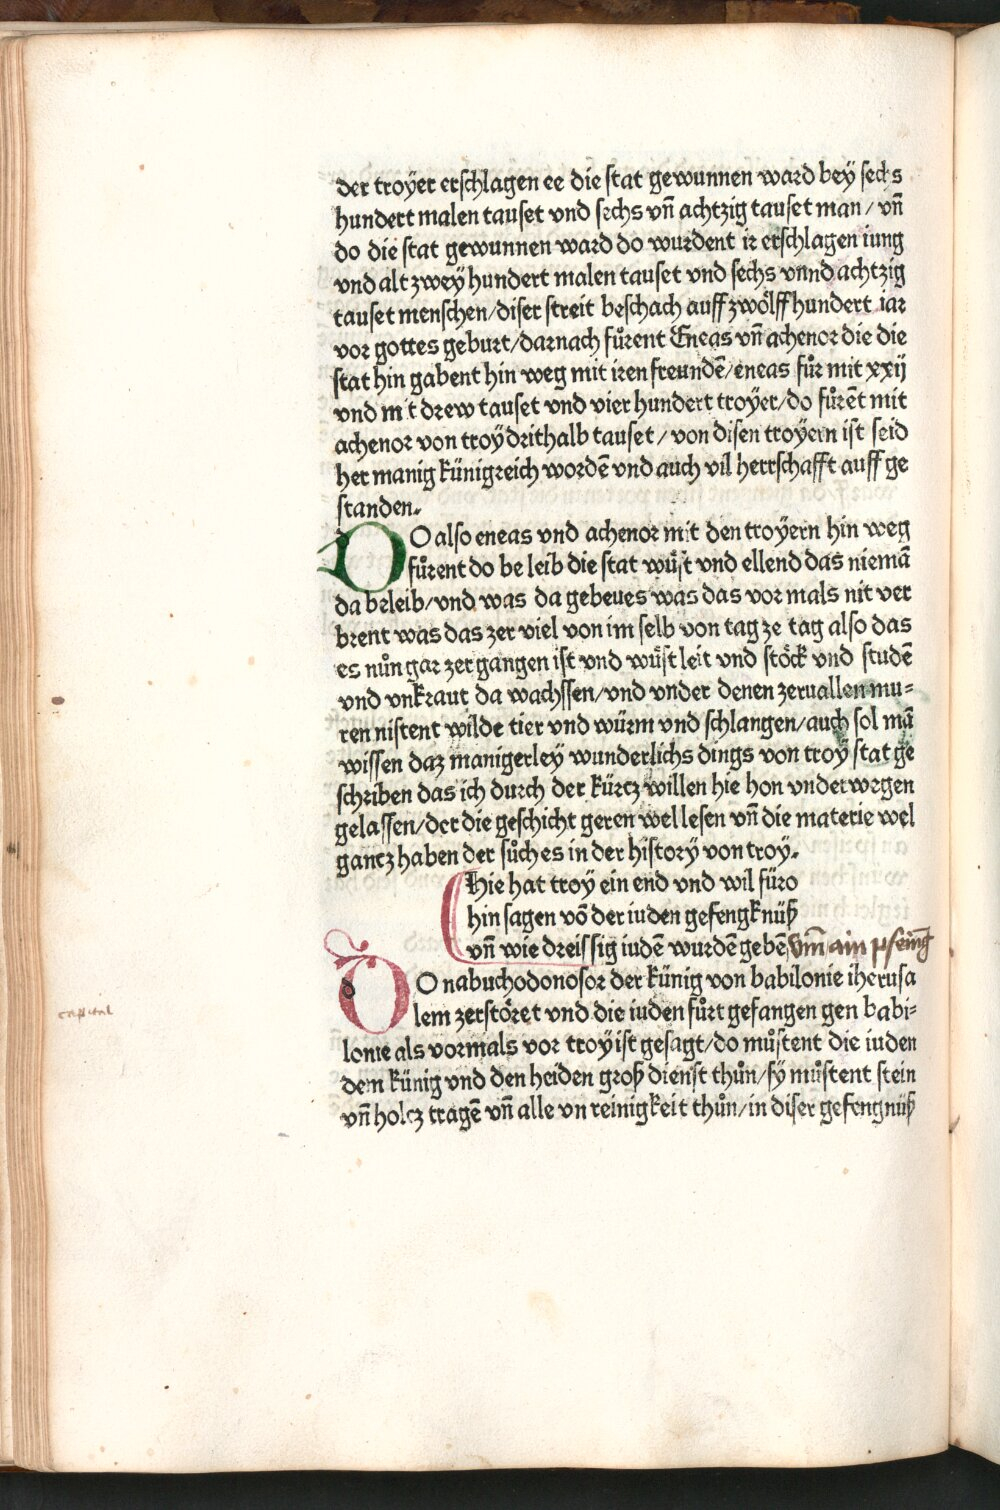 der troyer erschlagen ee die stat gewunnen ward bey sechs
hundert malen tauset vnd sechs vn̄ achtzig tauset man / vn̄
do die stat gewunnen ward do wurdent ir erschlagen iung
vnd alt zwey hundert malen tauset vnd sechs vnnd achtzig
tauset menschen / diser streit beschach auff zwölff hundert iar
vor gottes geburt / darnach fůrent Eneas vn̄ achenor die die
stat hin gabent hin weg mit iren freundē / eneas fůr mit xxij
vnd mit drew tauset vnd vier hundert troyer / do fůrēt mit
achenor von troy drithalb tauset / von disen troyern ist seid
her manig künigreich wordē vnd auch vil herrschafft auff ge
standen.
DO also eneas vnd achenor mit den troyern hin weg
fůrent do be leib die stat wüst vnd ellend das niemā
da beleib / vnd was da gebeues was das vor mals nit ver
brent was das zer viel von im selb von tag ze tag also das
es nůn gar zer gangen ist vnd wüst leit vnd stöck vnd studē
vnd vnkraut da wachssen / vnd vnder denen zeruallen mu=
ren nistent wilde tier vnd würm vnd schlangen / auch sol mā
wissen daz manigerley wunderlichs dings von troy stat ge
schriben das ich durch der kürcz willen hie hon vnderwegen
gelassen / der die geschicht geren wel lesen vn̄ die materie wel
gancz haben der sůch es in der history von troy.
Hie hat troy ein end vnd wil füro
hin sagen vō der iuden gefengknüß
vn̄ wie dreissig iudē wurdē gebē vm̄ ain pfennig
DO nabuchodonosor der künig von babilonie iherusa
lem zerstöret vnd die iuden fůrt gefangen gen babi=
lonie als vormals vor troy ist gesagt / do můstent die iuden
dem künig vnd den heiden groß dienst thůn / sy můstent stein
vn̄ holcz tragē vn̄ alle vn reinigkeit thůn / in diser gefengnüß
capital